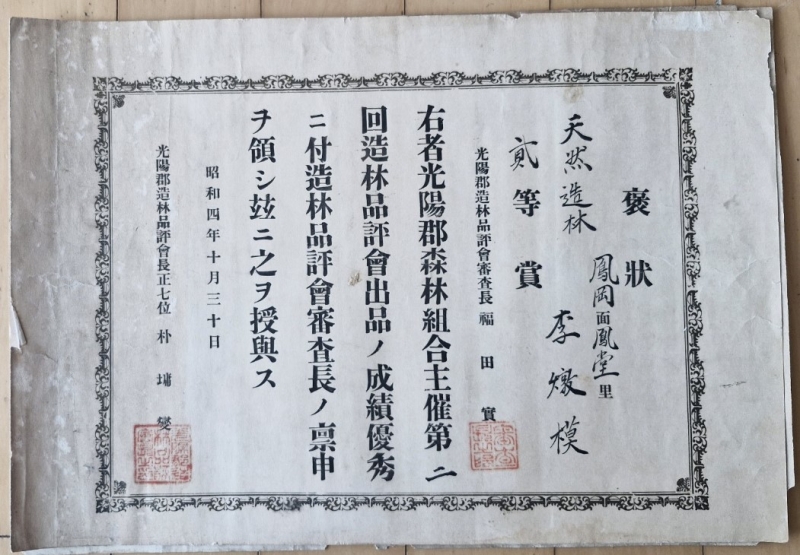 褒狀
鳳岡面鳳堂里
天然造林 李燉模
貳等賞
光陽郡造林品評會審査長 福田實
右者光陽郡森林組合主催第二
回造林品評會出品ノ成績優秀
ニ付造林品評會審査長ノ禀申
ヲ領シ玆ニ之ヲ授與ス
昭和四年十月三十日
光陽郡造林品評會長正七位 朴墉燮